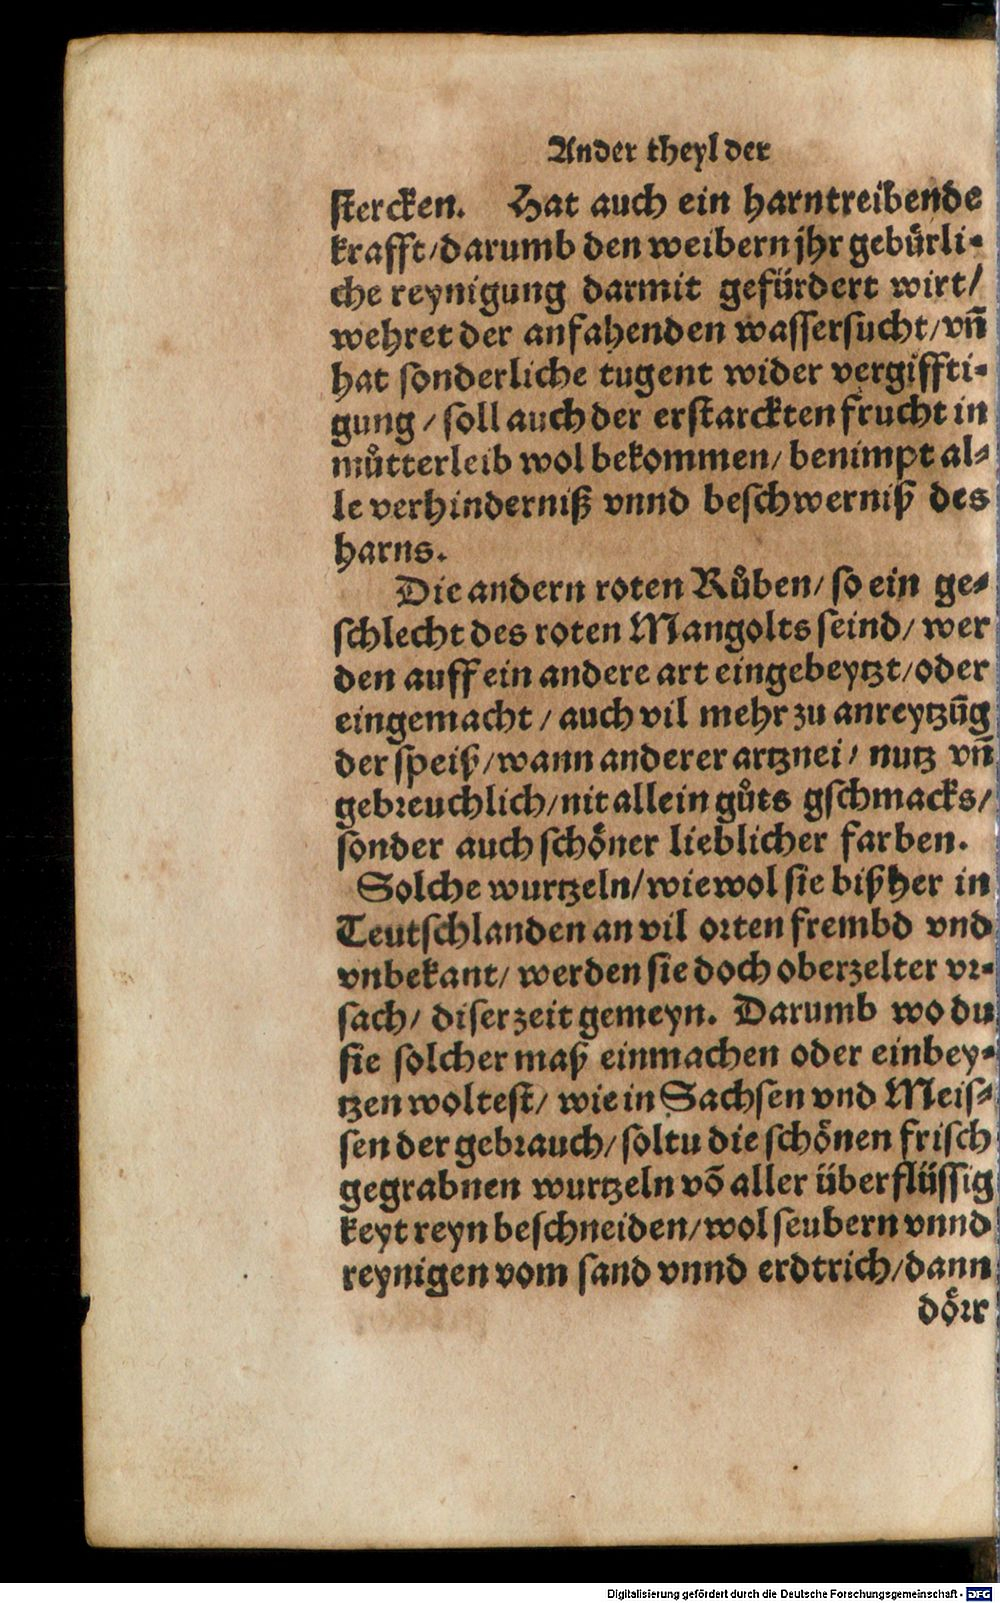 Ander theyl der
stercken. Hat auch ein harntreibende
krafft/darumb den weibern jhr gebürli-
che reynigung darmit gefürdert wirt/
wehret der anfahenden wassersucht/vñ
hat sonderliche tugent wider vergiffti-
gung / soll auch der erstarckten frucht in
můtterleib wol bekommen/ benimpt al-
le verhinderniß vnnd beschwerniß des
harns.
Die andern roten Růben/ so ein ge-
schlecht des roten Mangolts seind/ wer
den auff ein andere art eingebeytzt/oder
eingemacht / auch vil mehr zu anreytzūg
der speiß/wann anderer artznei/ nutz vñ
gebreuchlich/nit allein gůts gschmacks/
sonder auch schöner lieblicher farben.
Solche wurtzeln/wiewol sie bißher in
Teutschlanden an vil orten frembd vnd
vnbekant/ werden sie doch oberzelter vr-
sach/ diser zeit gemeyn. Darumb wo du
sie solcher maß einmachen oder einbey-
tzen woltest/ wie in Sachsen vnd Meis-
sen der gebrauch/soltu die schönen frisch
gegrabnen wurtzeln võ aller überflüssig
keyt reyn beschneiden/wol seubern vnnd
reynigen vom sand vnnd erdtrich/dann
dörr
Digitalisierung gefördert durch die Deutsche Forschungsgemeinschaft - DFG